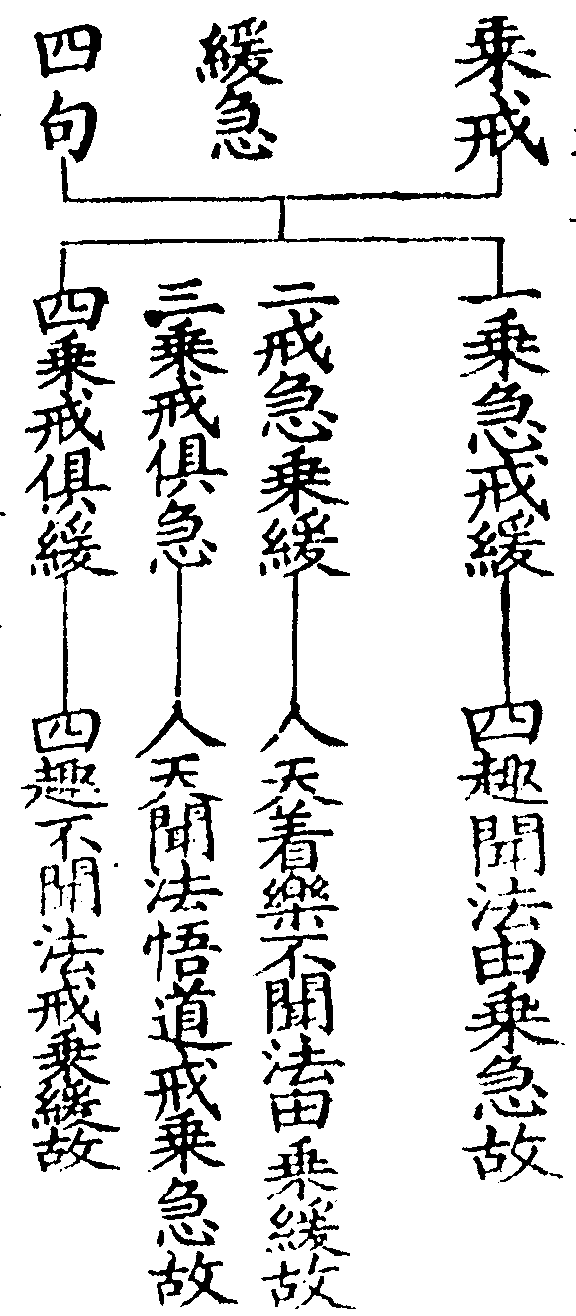 乘戒
緩急
四句
一乘急戒緩
四趣聞法由乘急故
二戒急乘緩
人天着樂不聞法由乘緩故
三乘戒俱急
人天聞法悟道戒乘急故
四乘戒俱緩
四趣不聞法戒乘緩故